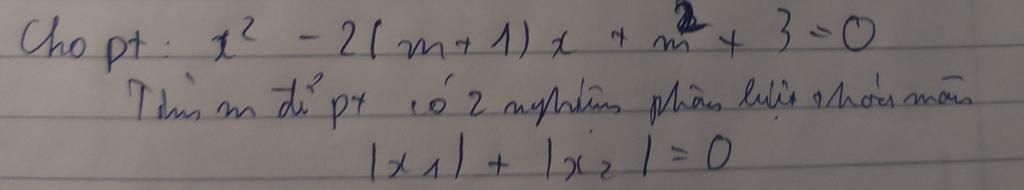 Cho pt: x² - 2(m+1)x + m² + 3 = 0
Tìm m để pt có 2 nghiệm phân biệt thỏa mãn
|x₁| + |x₂| = 0